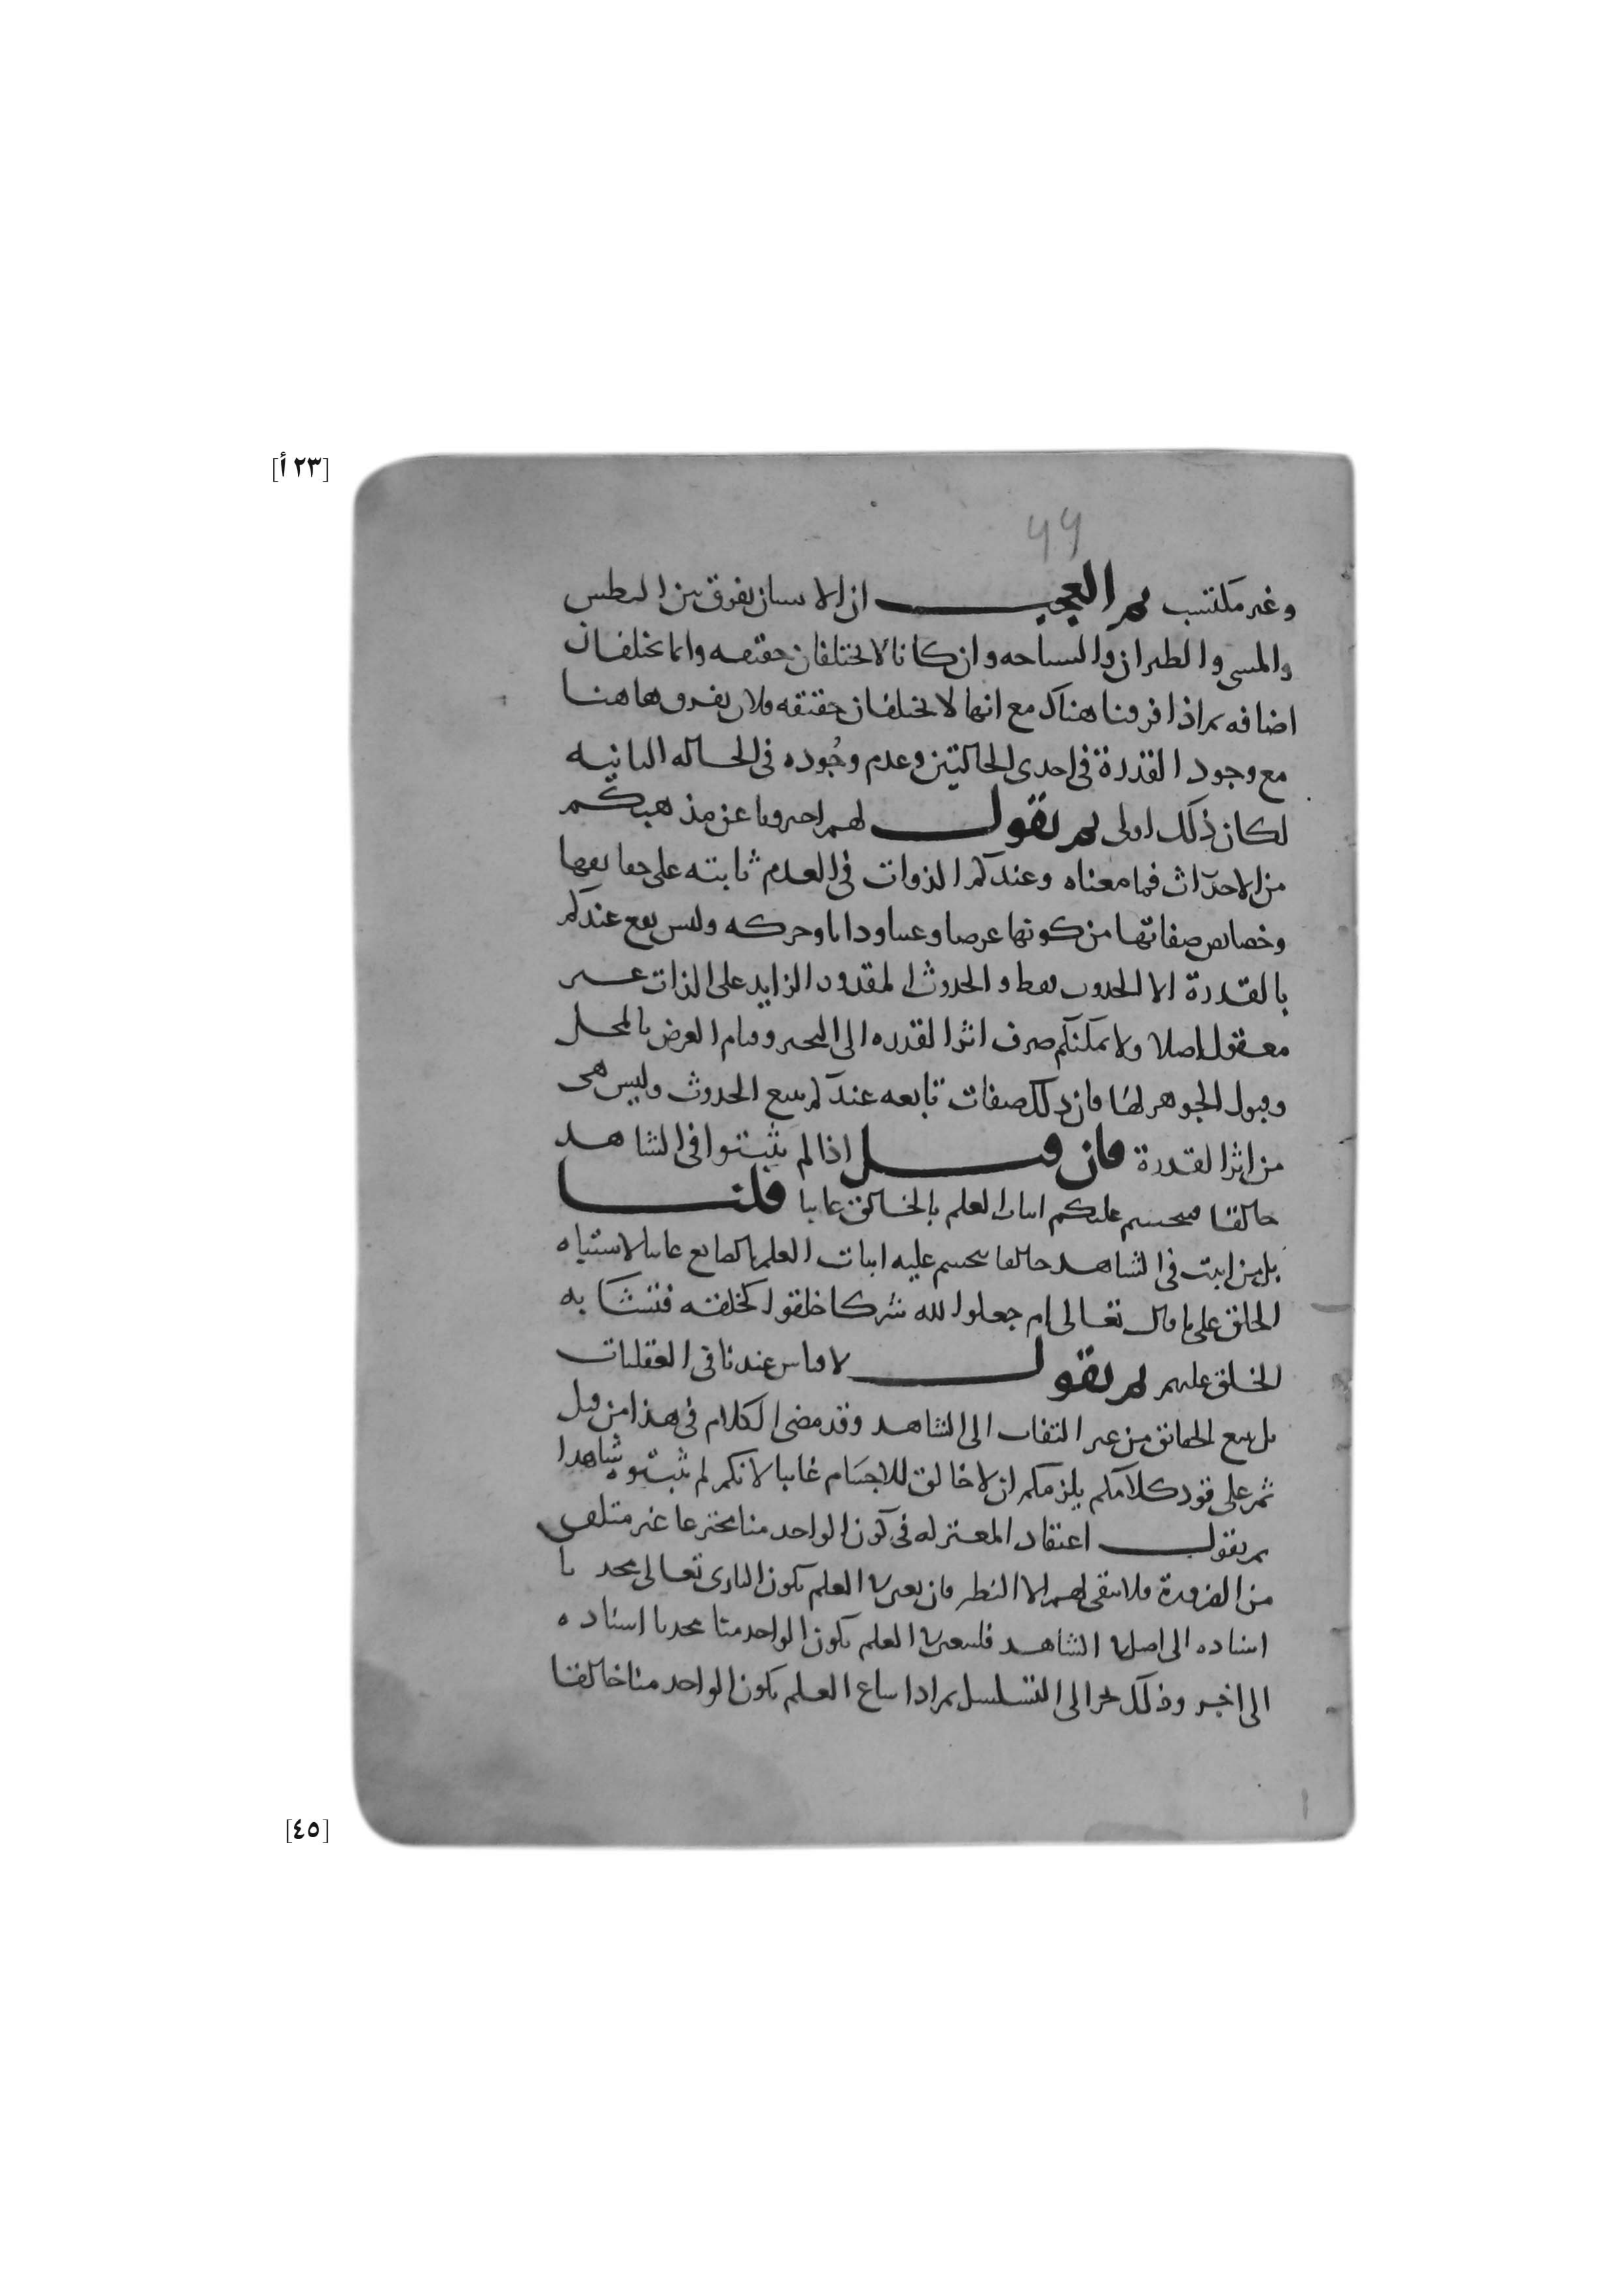 [٢٣ أ]
٤٤
وغير مكتسب ثم العجب ان الانسان يفرق بين البطش
والمشي والطيران والسباحه وان كانا لا يختلفان حقيقه وانما يختلفان
اضافه ثم اذا فرقنا هناك مع انهما لا يختلفان حقيقه فلان يفرق هاهنا
مع وجود القدرة في احدى الحالتين وعدم وجوده في الحاله الثانيه
لكان ذلك اولى ثم نقول لهم اخبرونا عن مذهبكم
من الاحداث فما معناه وعندكم الذوات في العدم ثابته على حقايقها
وخصايص صفاتها من كونها عرضا وعينا وذاتا وحركه وليس يقع عندكم
بالقدرة الا الحدوث فقط والحدوث المقدور الزايد على الذات غير
معقول اصلا ولا يمكنكم صرف اثر القدره الى التحيز وقيام العرض بالمحل
وقبول الجوهر لها فان ذلك صفات تابعه عندكم تتبع الحدوث وليس هي
من اثر القدرة فان قيل اذا لم يثبتوا في الشاهد
خالقا فينحسم عليكم اثبات العلم بالخالق غايبا قلنا
بل من اثبت في الشاهد خالقا ينحسم عليه اثبات العلم بالصانع غايبا لاشتباه
الخلق على ما قال تعالى ام جعلوا لله شركا خلقوا كخلقه فتشابه
الخلق عليهم ثم نقول لا قياس عندنا في العقليات
بل نتبع الحقائق من غير التفات الى الشاهد وقد مضى الكلام في هذا من قبل
ثم على قود كلامكم يلزمكم ان لا خالق للاجسام غايبا لانكم لم تثبتوه شاهدا
ثم نقول اعتقاد المعتزله في كون الواحد منا مخترعا غير متلقى
من الضرورة فلا يبقى لهم الا النظر فان بعرى العلم بكون البارى تعالى محدثا
اسناده الى اصل الشاهد فليعرى العلم بكون الواحد منا محدثا اسناده
الى اخر وذلك يجر الى التسلسل ثم اذا ساغ العلم بكون الواحد منا خالقا
[٤٥]